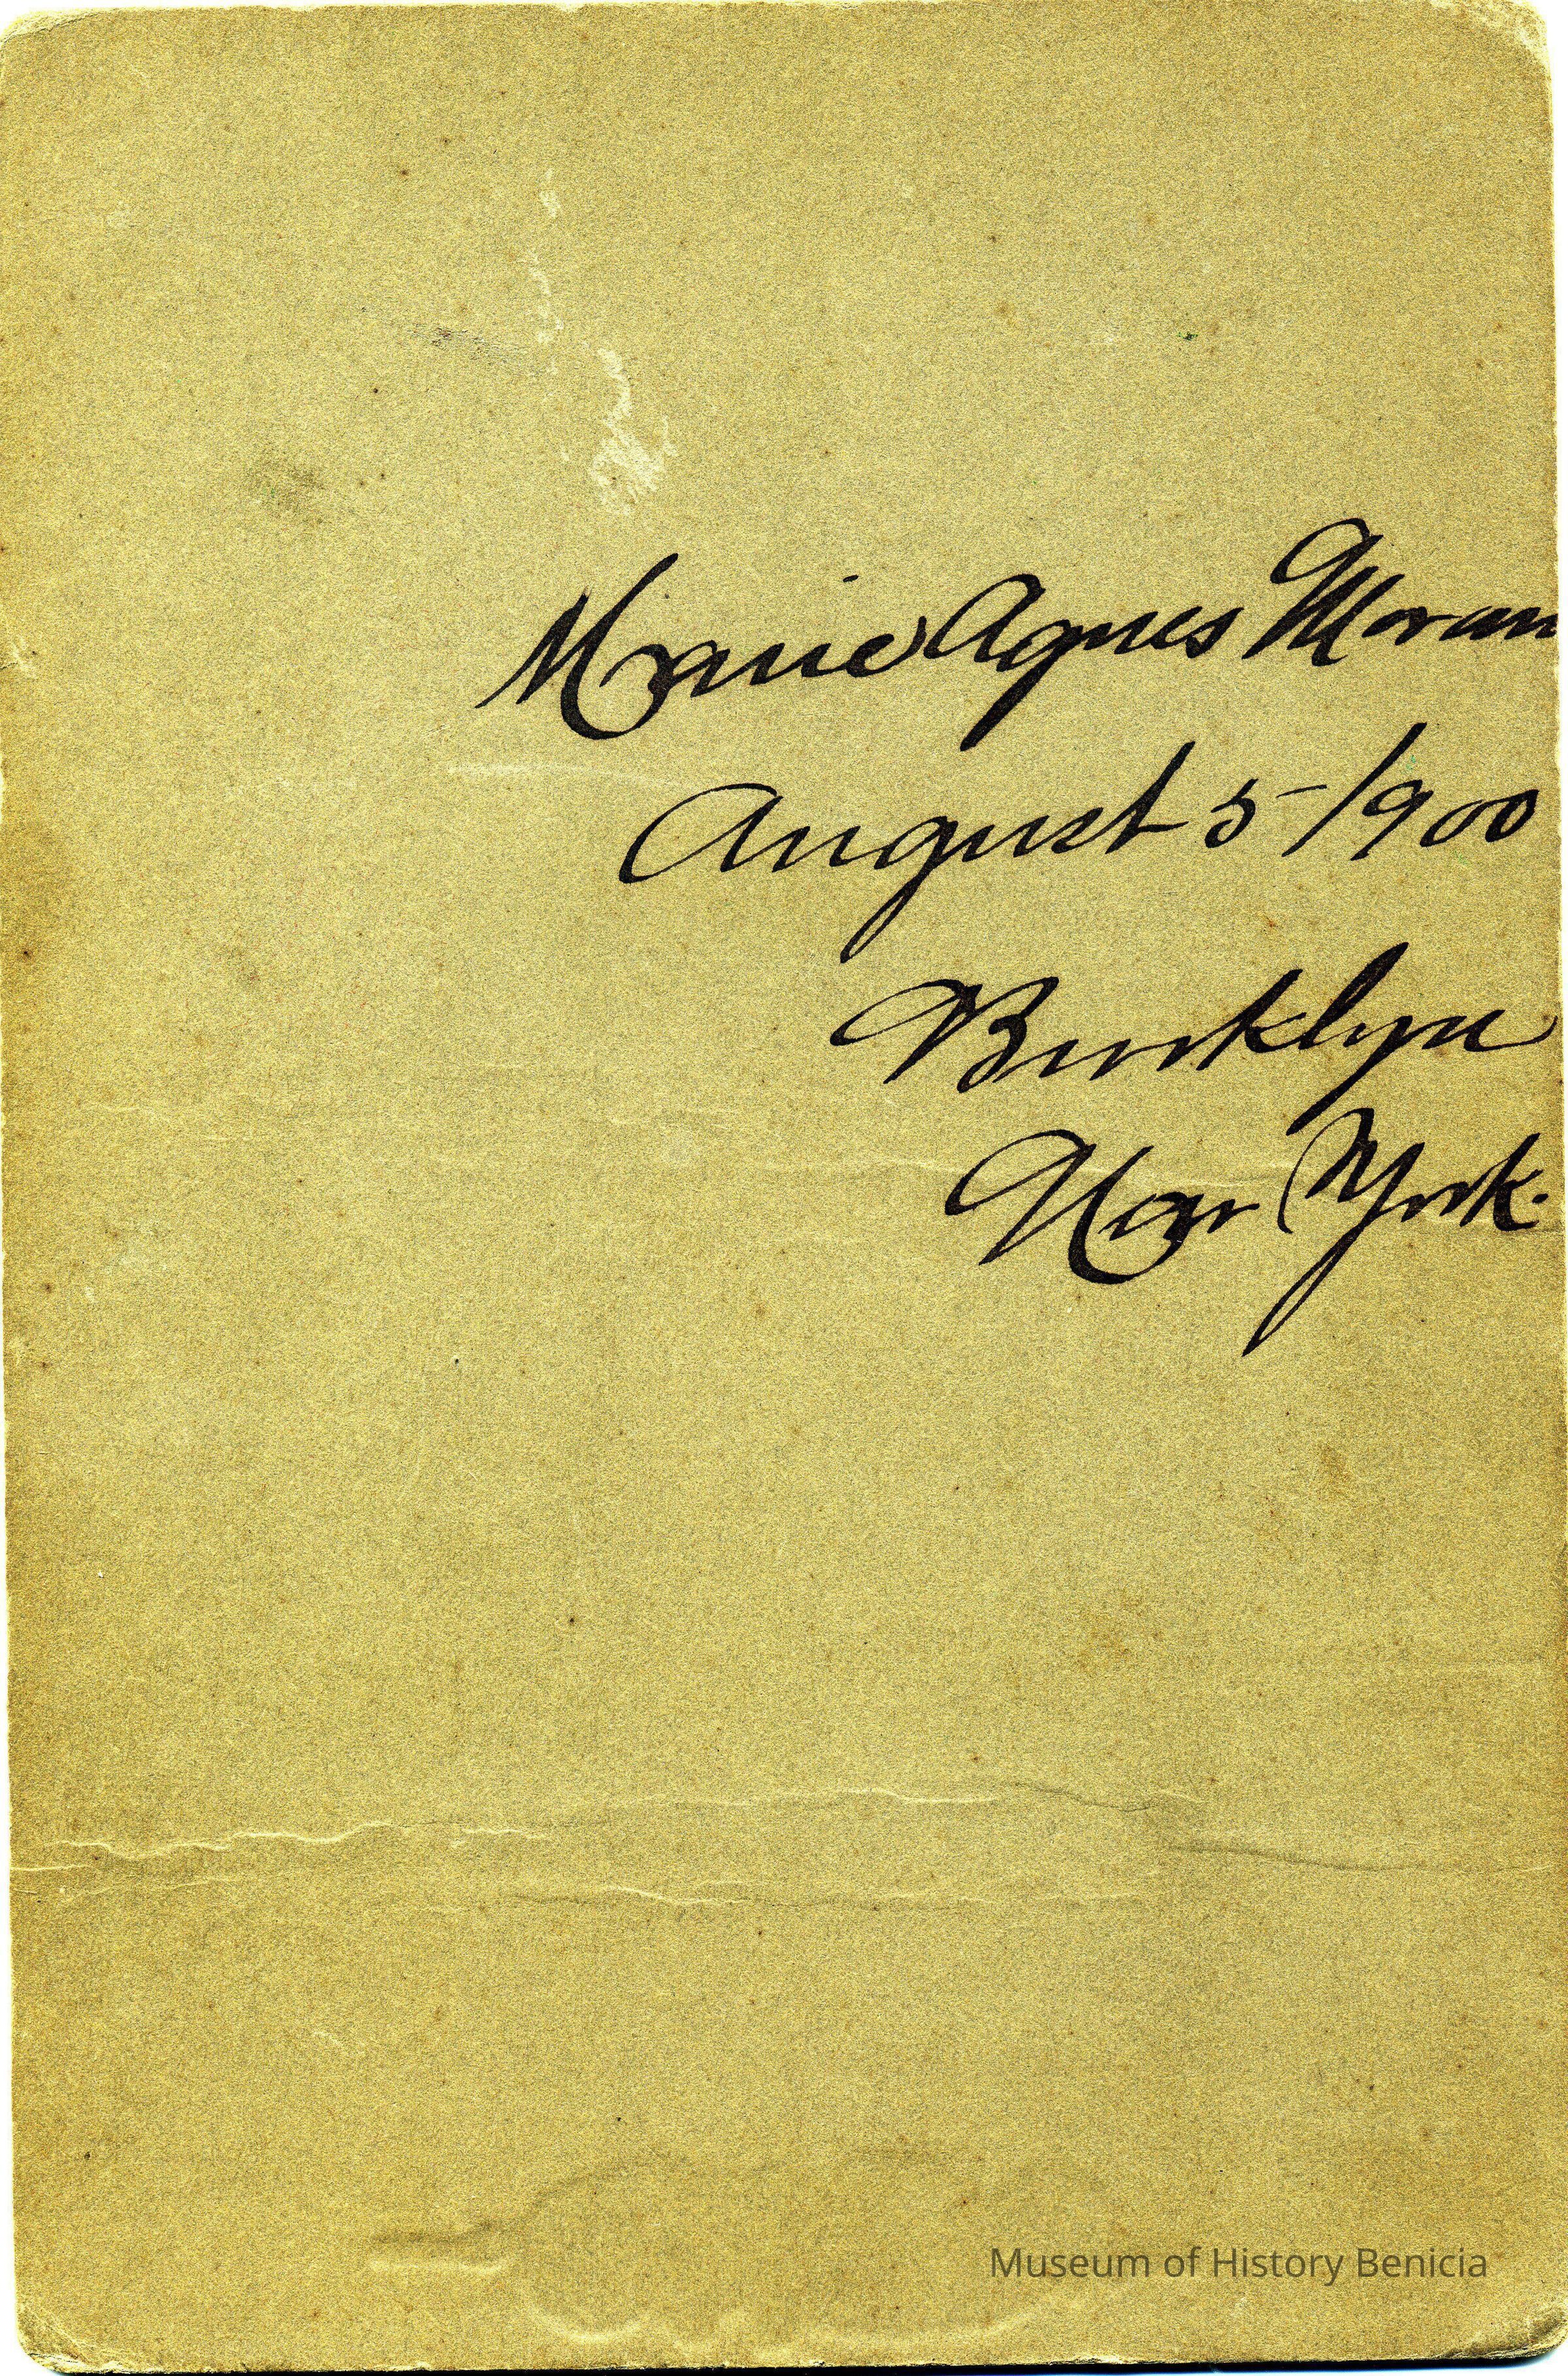 Marie Agnes Moran
August 5 - 1900
Brooklyn
New York.
Museum of History Benicia